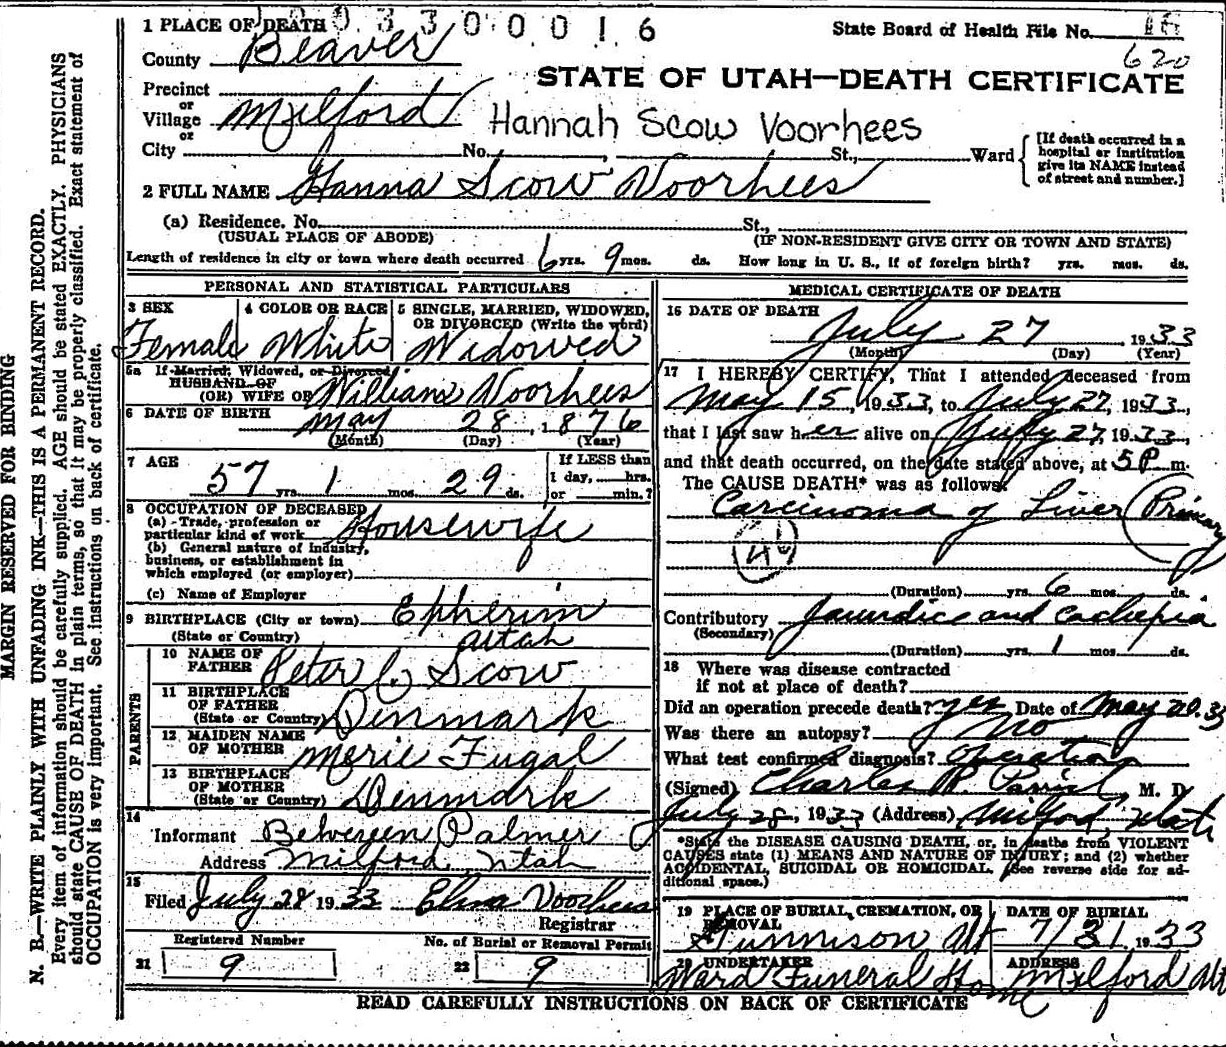 1 PLACE OF DEATH
3 3 0 0 0 1 6
State Board of Health File No. 16
620
County Beaver
STATE OF UTAH—DEATH CERTIFICATE
Precinct
or
Village Milford
or
Hannah Scow Voorhees
City No. St., Ward
[If death occurred in a hospital or institution give its NAME instead of street and number.]
2 FULL NAME Hanna Scow Voorhees
(a) Residence. No. St.,
(USUAL PLACE OF ABODE) (IF NON-RESIDENT GIVE CITY OR TOWN AND STATE)
Length of residence in city or town where death occurred 6 yrs. 9 mos. ds. How long in U. S., if of foreign birth? yrs. mos. ds.
PERSONAL AND STATISTICAL PARTICULARS
3 SEX Female
4 COLOR OR RACE White
5 SINGLE, MARRIED, WIDOWED, OR DIVORCED (Write the word) Widowed
5a If Married, Widowed, or Divorced
HUSBAND OF
(OR) WIFE OF William Voorhees
6 DATE OF BIRTH May 28, 1876
(Month) (Day) (Year)
7 AGE 57 yrs. 1 mos. 29 ds.
If LESS than 1 day, hrs. or min.?
8 OCCUPATION OF DECEASED
(a) Trade, profession or particular kind of work Housewife
(b) General nature of industry, business, or establishment in which employed (or employer)
(c) Name of Employer
9 BIRTHPLACE (City or town) Epherim
(State or Country) Utah
PARENTS
10 NAME OF FATHER Peter C. Scow
11 BIRTHPLACE OF FATHER (State or Country) Denmark
12 MAIDEN NAME OF MOTHER Merie Fugal
13 BIRTHPLACE OF MOTHER (State or Country) Denmark
14
Informant Belvereen Palmer
Address Milford, Utah
15
Filed July 28 1933 Elma Voorhees
Registrar
Registered Number
21 9
No. of Burial or Removal Permit
22 9
MEDICAL CERTIFICATE OF DEATH
16 DATE OF DEATH
July 27, 1933
(Month) (Day) (Year)
17 I HEREBY CERTIFY, That I attended deceased from
May 15, 1933, to July 27, 1933,
that I last saw her alive on July 27, 1933,
and that death occurred, on the date stated above, at 5P m.
The CAUSE DEATH* was as follows:
Carcinoma of Liver (Primary
(Duration) yrs. 6 mos. ds.
Contributory Jaundice and Cachexia
(Secondary)
(Duration) yrs. 1 mos. ds.
18 Where was disease contracted
if not at place of death?
Did an operation precede death? yes Date of May 20.33
Was there an autopsy? no
What test confirmed diagnosis? Operation
(Signed) Charles R. M. D.
July 28, 1933 (Address) Milford, Utah
*State the DISEASE CAUSING DEATH, or, in deaths from VIOLENT
CAUSES state (1) MEANS AND NATURE OF INJURY; and (2) whether
ACCIDENTAL, SUICIDAL OR HOMICIDAL. (See reverse side for ad-
ditional space.)
19 PLACE OF BURIAL, CREMATION, OR REMOVAL
Gunnison Ut
DATE OF BURIAL
7/31, 1933
20 UNDERTAKER
Ward Funeral Home
ADDRESS
Milford Ut
READ CAREFULLY INSTRUCTIONS ON BACK OF CERTIFICATE
MARGIN RESERVED FOR BINDING
N. B.—WRITE PLAINLY WITH UNFADING INK—THIS IS A PERMANENT RECORD.
Every item of information should be carefully supplied. AGE should be stated EXACTLY. PHYSICIANS
should state CAUSE OF DEATH in plain terms, so that it may be properly classified. Exact statement of
OCCUPATION is very important. See instructions on back of certificate.